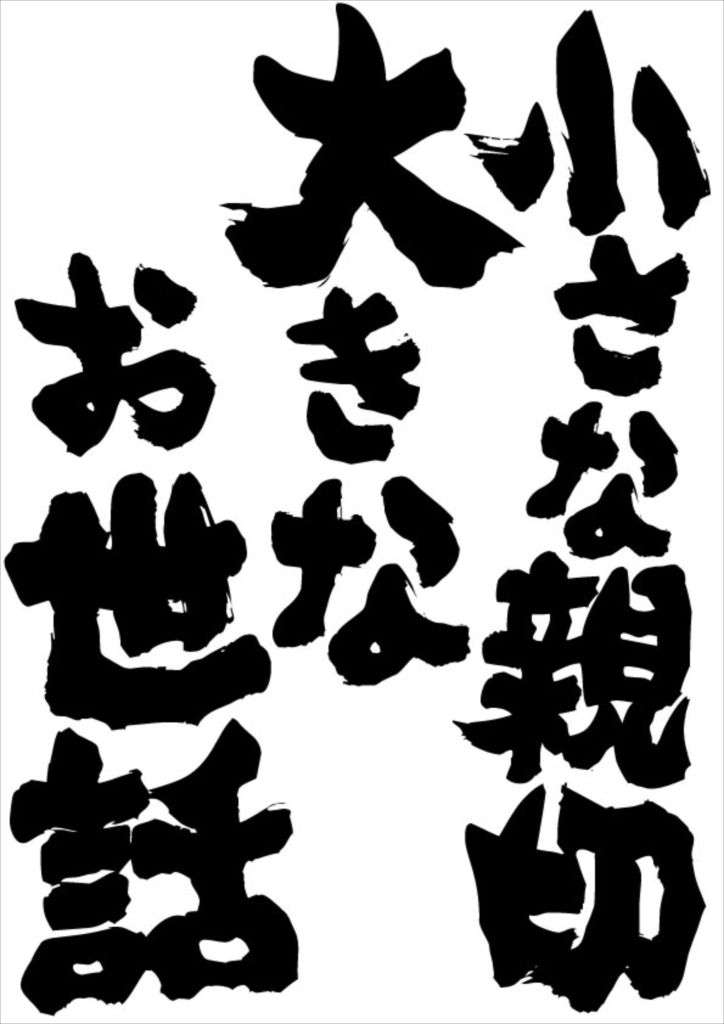 小さな親切
大きな
お世話